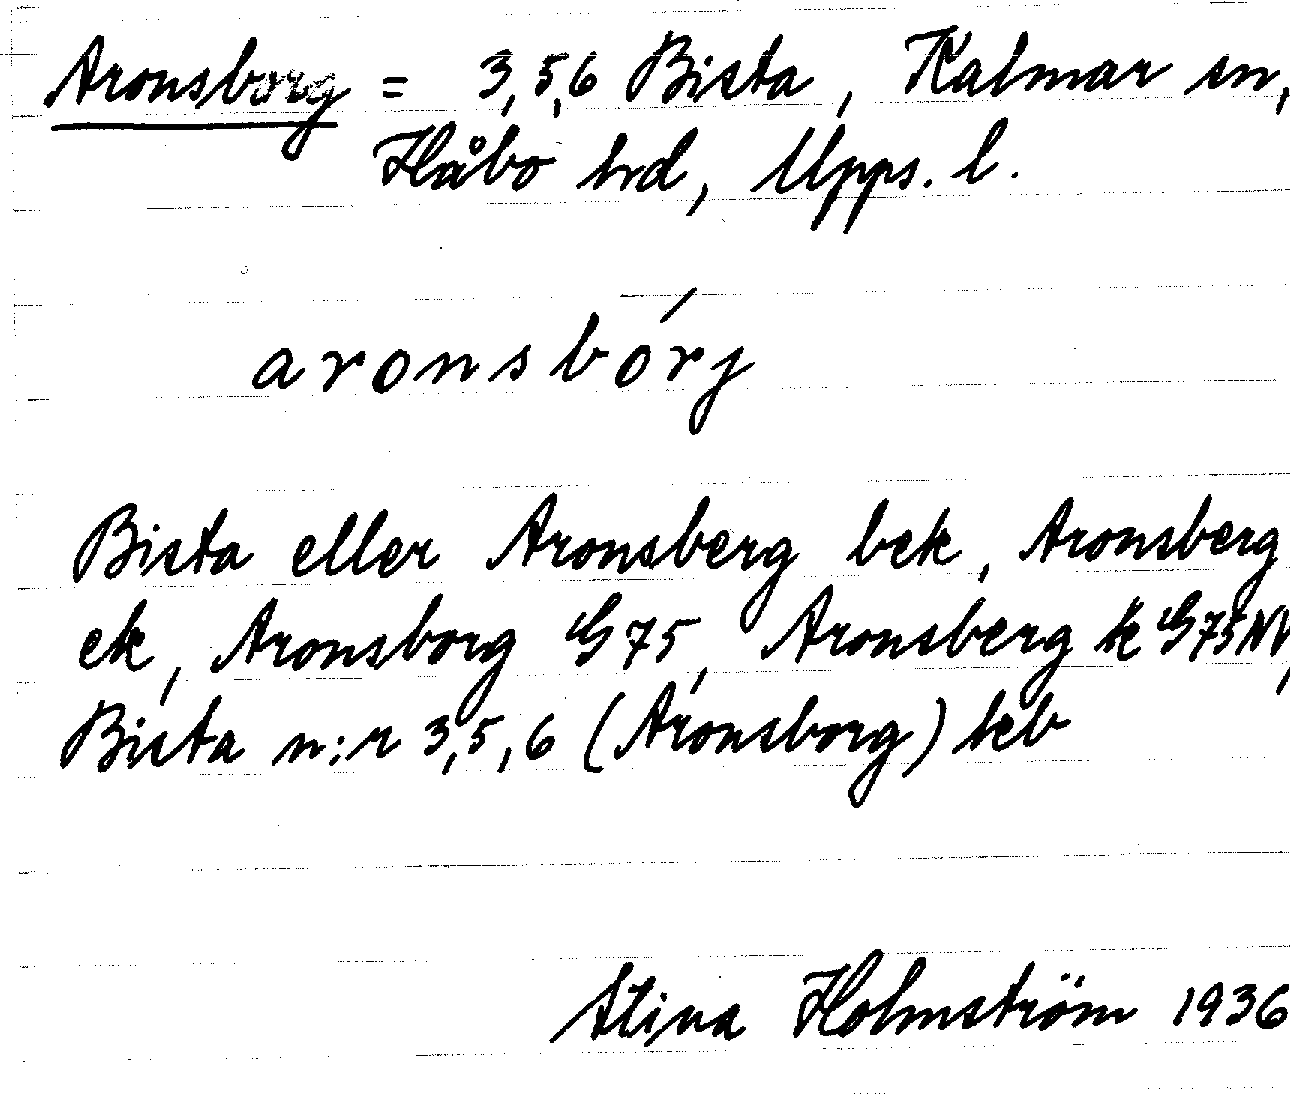 Aronsborg = 3,5,6 Bista, Kalmar sn,
Håbo hrd, Upps. l.
aronsbórj
Bista eller Aronsberg bek, Aronsberg
ek, Aronsborg G75, Aronsberg k G75NV,
Bista n:r 3,5,6 (Aronsborg) keb
Stina Holmström 1936